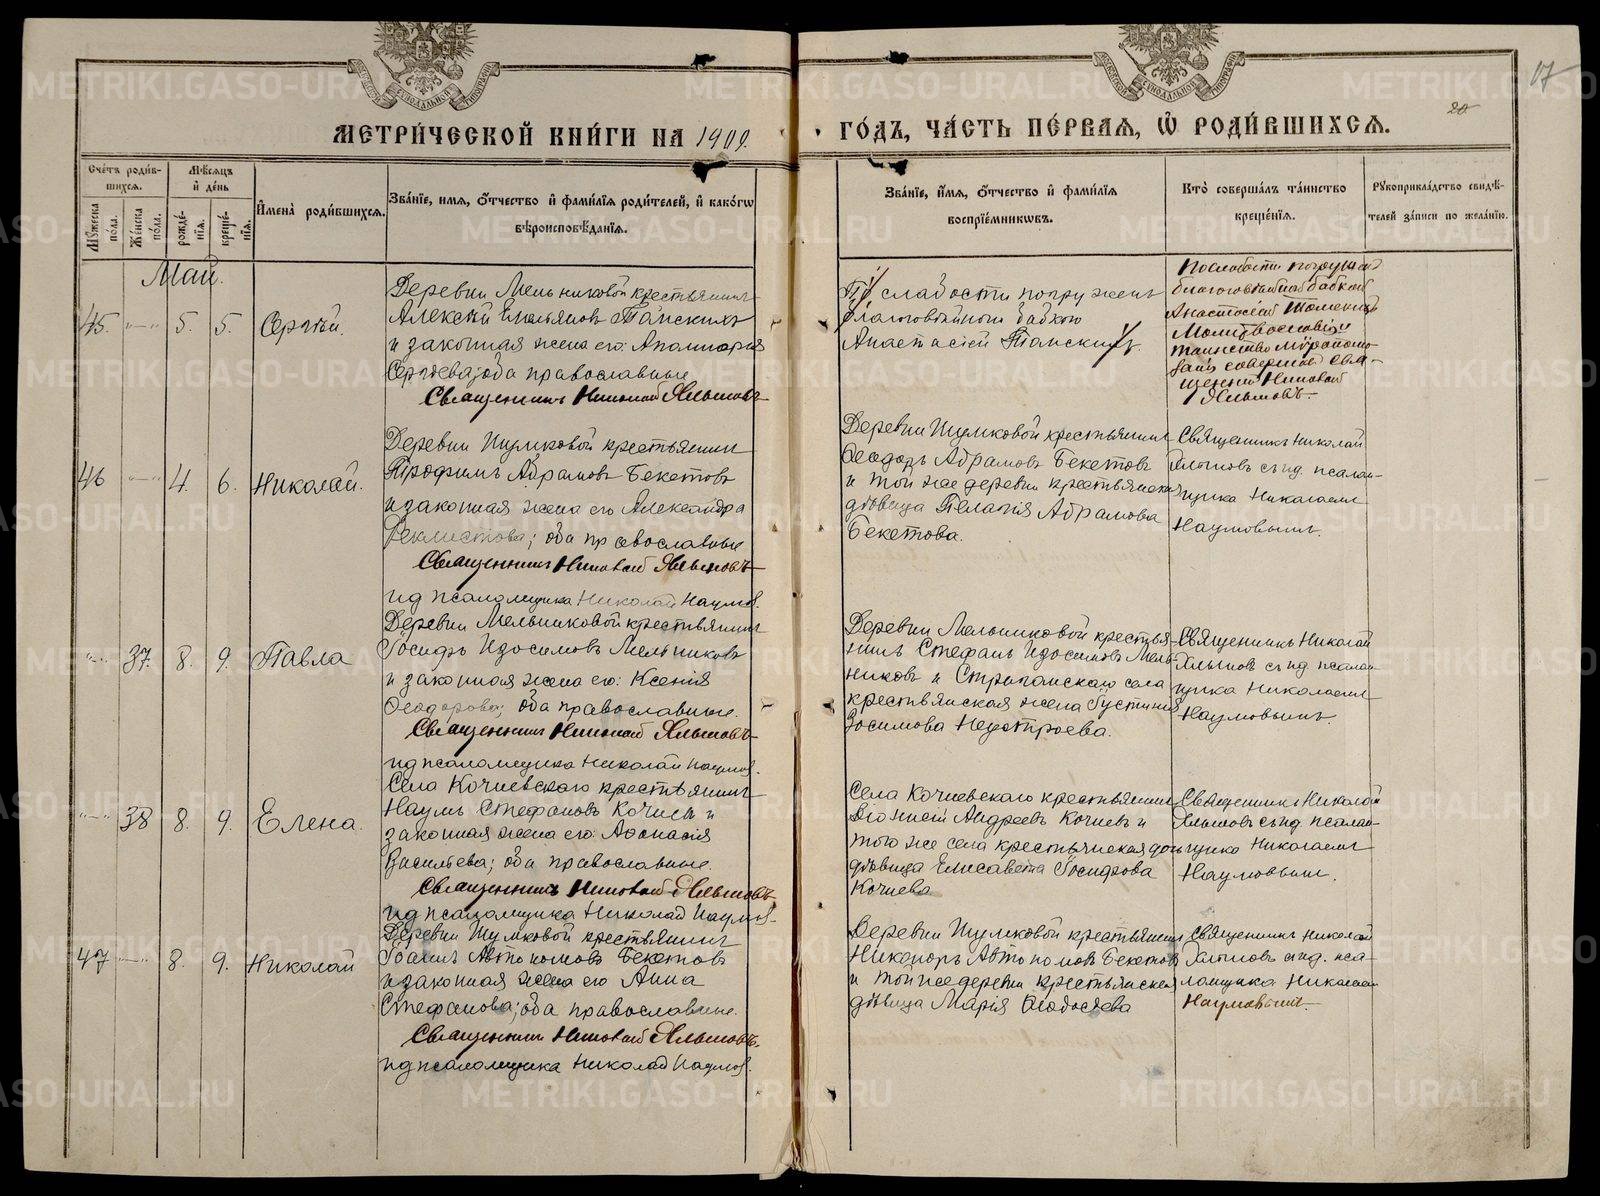 МЕТРИЧЕСКОЙ КНИГИ НА 1909.
ГОДЪ, ЧАСТЬ ПЕРВАЯ, Ѿ РОДИВШИХСЯ.
17
20
Счетъ родив-
шихся.
Мѣсяцъ
и день
Мужеска
пола.
Женска
пола.
рожде-
нія.
креще-
нія.
Имена родившихся.
Званіе, имя, отчество и фамилія родителей, и какогѡ
вѣроисповѣданія.
Званіе, имя, отчество и фамилія
воспріемникѡвъ.
Кто совершалъ таинство
крещенія.
Рукоприкладство свидѣ-
телей записи по желанію.
Май.
45. 5. 5. Сергѣй.
Деревни Мельниковой крестьянинъ
Алексѣй Емельяновъ
и законная жена его: Аполинарія
Сергѣева; оба православные
Священникъ Николай
По слабости погруженъ
благоговѣйною бабкою
Анастасіей
По слабости погружен
благоговѣйной бабкой
Анастасіей
таинство
совершилъ свя-
щенникъ Николай
46 4. 6. Николай.
Деревни Шумковой крестьянинъ
Трофимъ Абрамовъ Бекетовъ
и законная жена его Александра
оба православные
Священникъ Николай
ид псаломщика Николай Наумов.
Деревни Шумковой крестьянинъ
Ѳеодоръ Абрамовъ Бекетовъ
и той же деревни крестьянская
дѣвица Пелагія Абрамова
Бекетова.
Священникъ Николай
съ ид. псалом-
щика Николаемъ
Наумовымъ.
37. 8. 9. Павла
Деревни Мельниковой крестьянинъ
Іосифъ Изосимовъ Мельниковъ
и законная жена его: Ксенія
Ѳеодорова; оба православные.
Священникъ Николай
ид псаломщика Николай Наумов.
Деревни Мельниковой крестья-
нинъ Стефанъ Изосимовъ Мель-
никовъ и села
крестьянская жена Іустинія
Зосимова
Священникъ Николай
съ ид псалом-
щика Николаемъ
Наумовымъ
38 8. 9. Елена.
Села Кочневскаго крестьянинъ
Наумъ Стефановъ Кочневъ и
законная жена его: Аѳанасія
Васильева; оба православные.
Священникъ Николай
ид псаломщика Николай Наумов.
Села Кочневскаго крестьянинъ
Діонисій Андреевъ Кочневъ и
того же села крестьянская дочь
дѣвица Елисавета Іосифова
Кочнева
Священникъ Николай
съ ид псалом-
щика Николаемъ
Наумовымъ.
47 8. 9. Николай
Деревни Шумковой крестьянинъ
Іоаннъ Автономовъ Бекетовъ
и законная жена его Анна
Стефанова; оба православные.
Священникъ Николай
ид псаломщика Николай Наумов.
Деревни Шумковой крестьянинъ
Никаноръ Автономовъ Бекетовъ
и той же деревни крестьянская
дѣвица Марія
Священникъ Николай
съ ид. пса-
ломщика Николаемъ
Наумовымъ.
METRIKI.GASO-URAL.RU